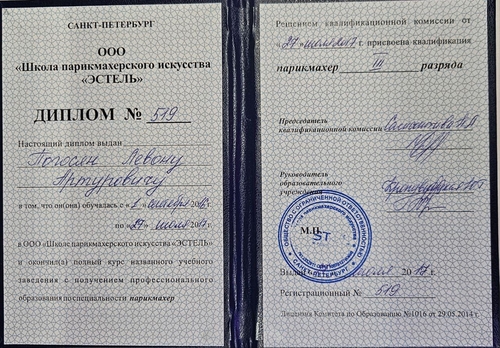 САНКТ-ПЕТЕРБУРГ
ООО
«Школа парикмахерского искусства
«ЭСТЕЛЬ»
ДИПЛОМ № 519
Настоящий диплом выдан
Погосян Левону
Артуровичу
в том, что он(она) обучалась с « 1 » сентября 2016 г.
по « 27 » июля 2017 г.
в ООО «Школе парикмахерского искусства «ЭСТЕЛЬ»
и окончил(а) полный курс названного учебного
заведения с получением профессионального
образования по специальности парикмахер
Решением квалификационной комиссии от
« 27 » июля 2017 г. присвоена квалификация
парикмахер III разряда
Председатель
квалификационной комиссии
Руководитель
образовательного
учреждения
М.П.
ОБЩЕСТВО С ОГРАНИЧЕННОЙ ОТВЕТСТВЕННОСТЬЮ
САНКТ-ПЕТЕРБУРГ
ST
Выдан июля 2017 г.
Регистрационный № 519
Лицензия Комитета по Образованию №1016 от 29.05.2014 г.